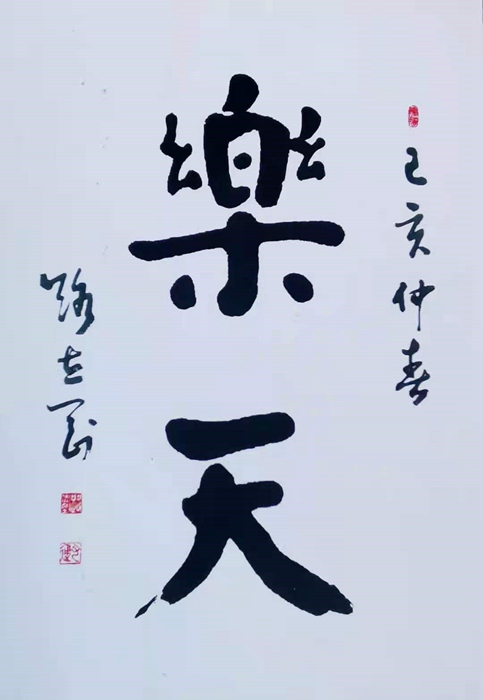 己亥仲春
樂天
路